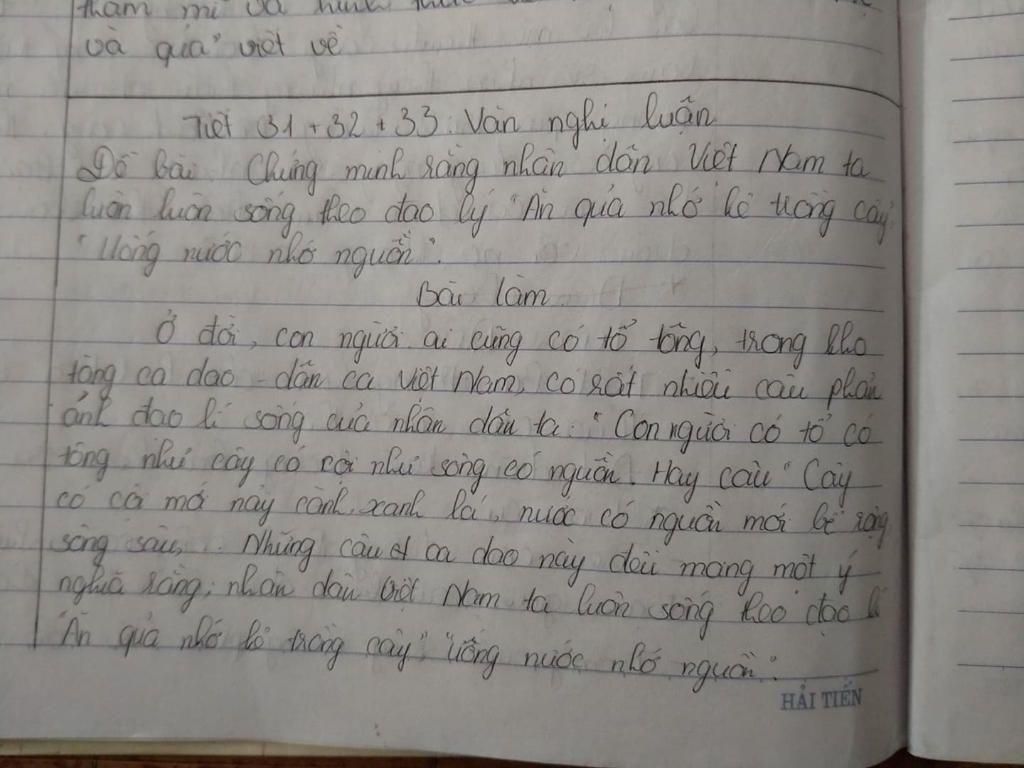 thẩm mĩ và hình thức
và quả" viết về
Tiết 31 + 32 + 33: Văn nghị luận
Đề bài: Chứng minh rằng nhân dân Việt Nam ta
luôn luôn sống theo đạo lý "Ăn quả nhớ kẻ trồng cây"
"Uống nước nhớ nguồn".
Bài làm
Ở đời, con người ai cũng có tổ tông, trong kho
tàng ca dao - dân ca Việt Nam, có rất nhiều câu phản
ánh đạo lí sống của nhân dân ta. "Con người có tổ có
tông như cây có cội như sông có nguồn. Hay câu "Cây
có cội mới nảy cành xanh lá, nước có nguồn mới bể rộng
sông sâu... Những câu ca dao này đều mang một ý
nghĩa rằng: nhân dân Việt Nam ta luôn sống theo đạo lí
"Ăn quả nhớ kẻ trồng cây", "Uống nước nhớ nguồn".
HẢI TIẾN